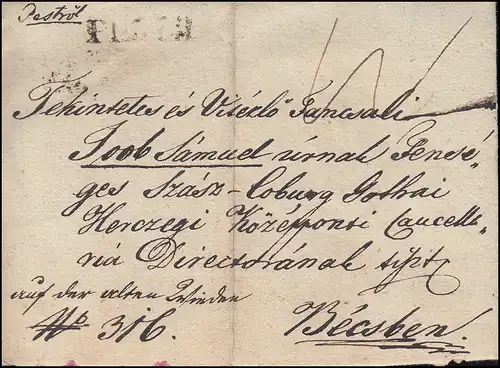 Pestről
PESTH
Tekintetes és Vitézlő Tancsali
Joob Sámuel úrnak Fensé-
ges Szász-Coburg Gothai
Herczegi Középponti Cancella-
ria Directorának tiszt.
auf der alten Wieden
No 316.
Bécsben.